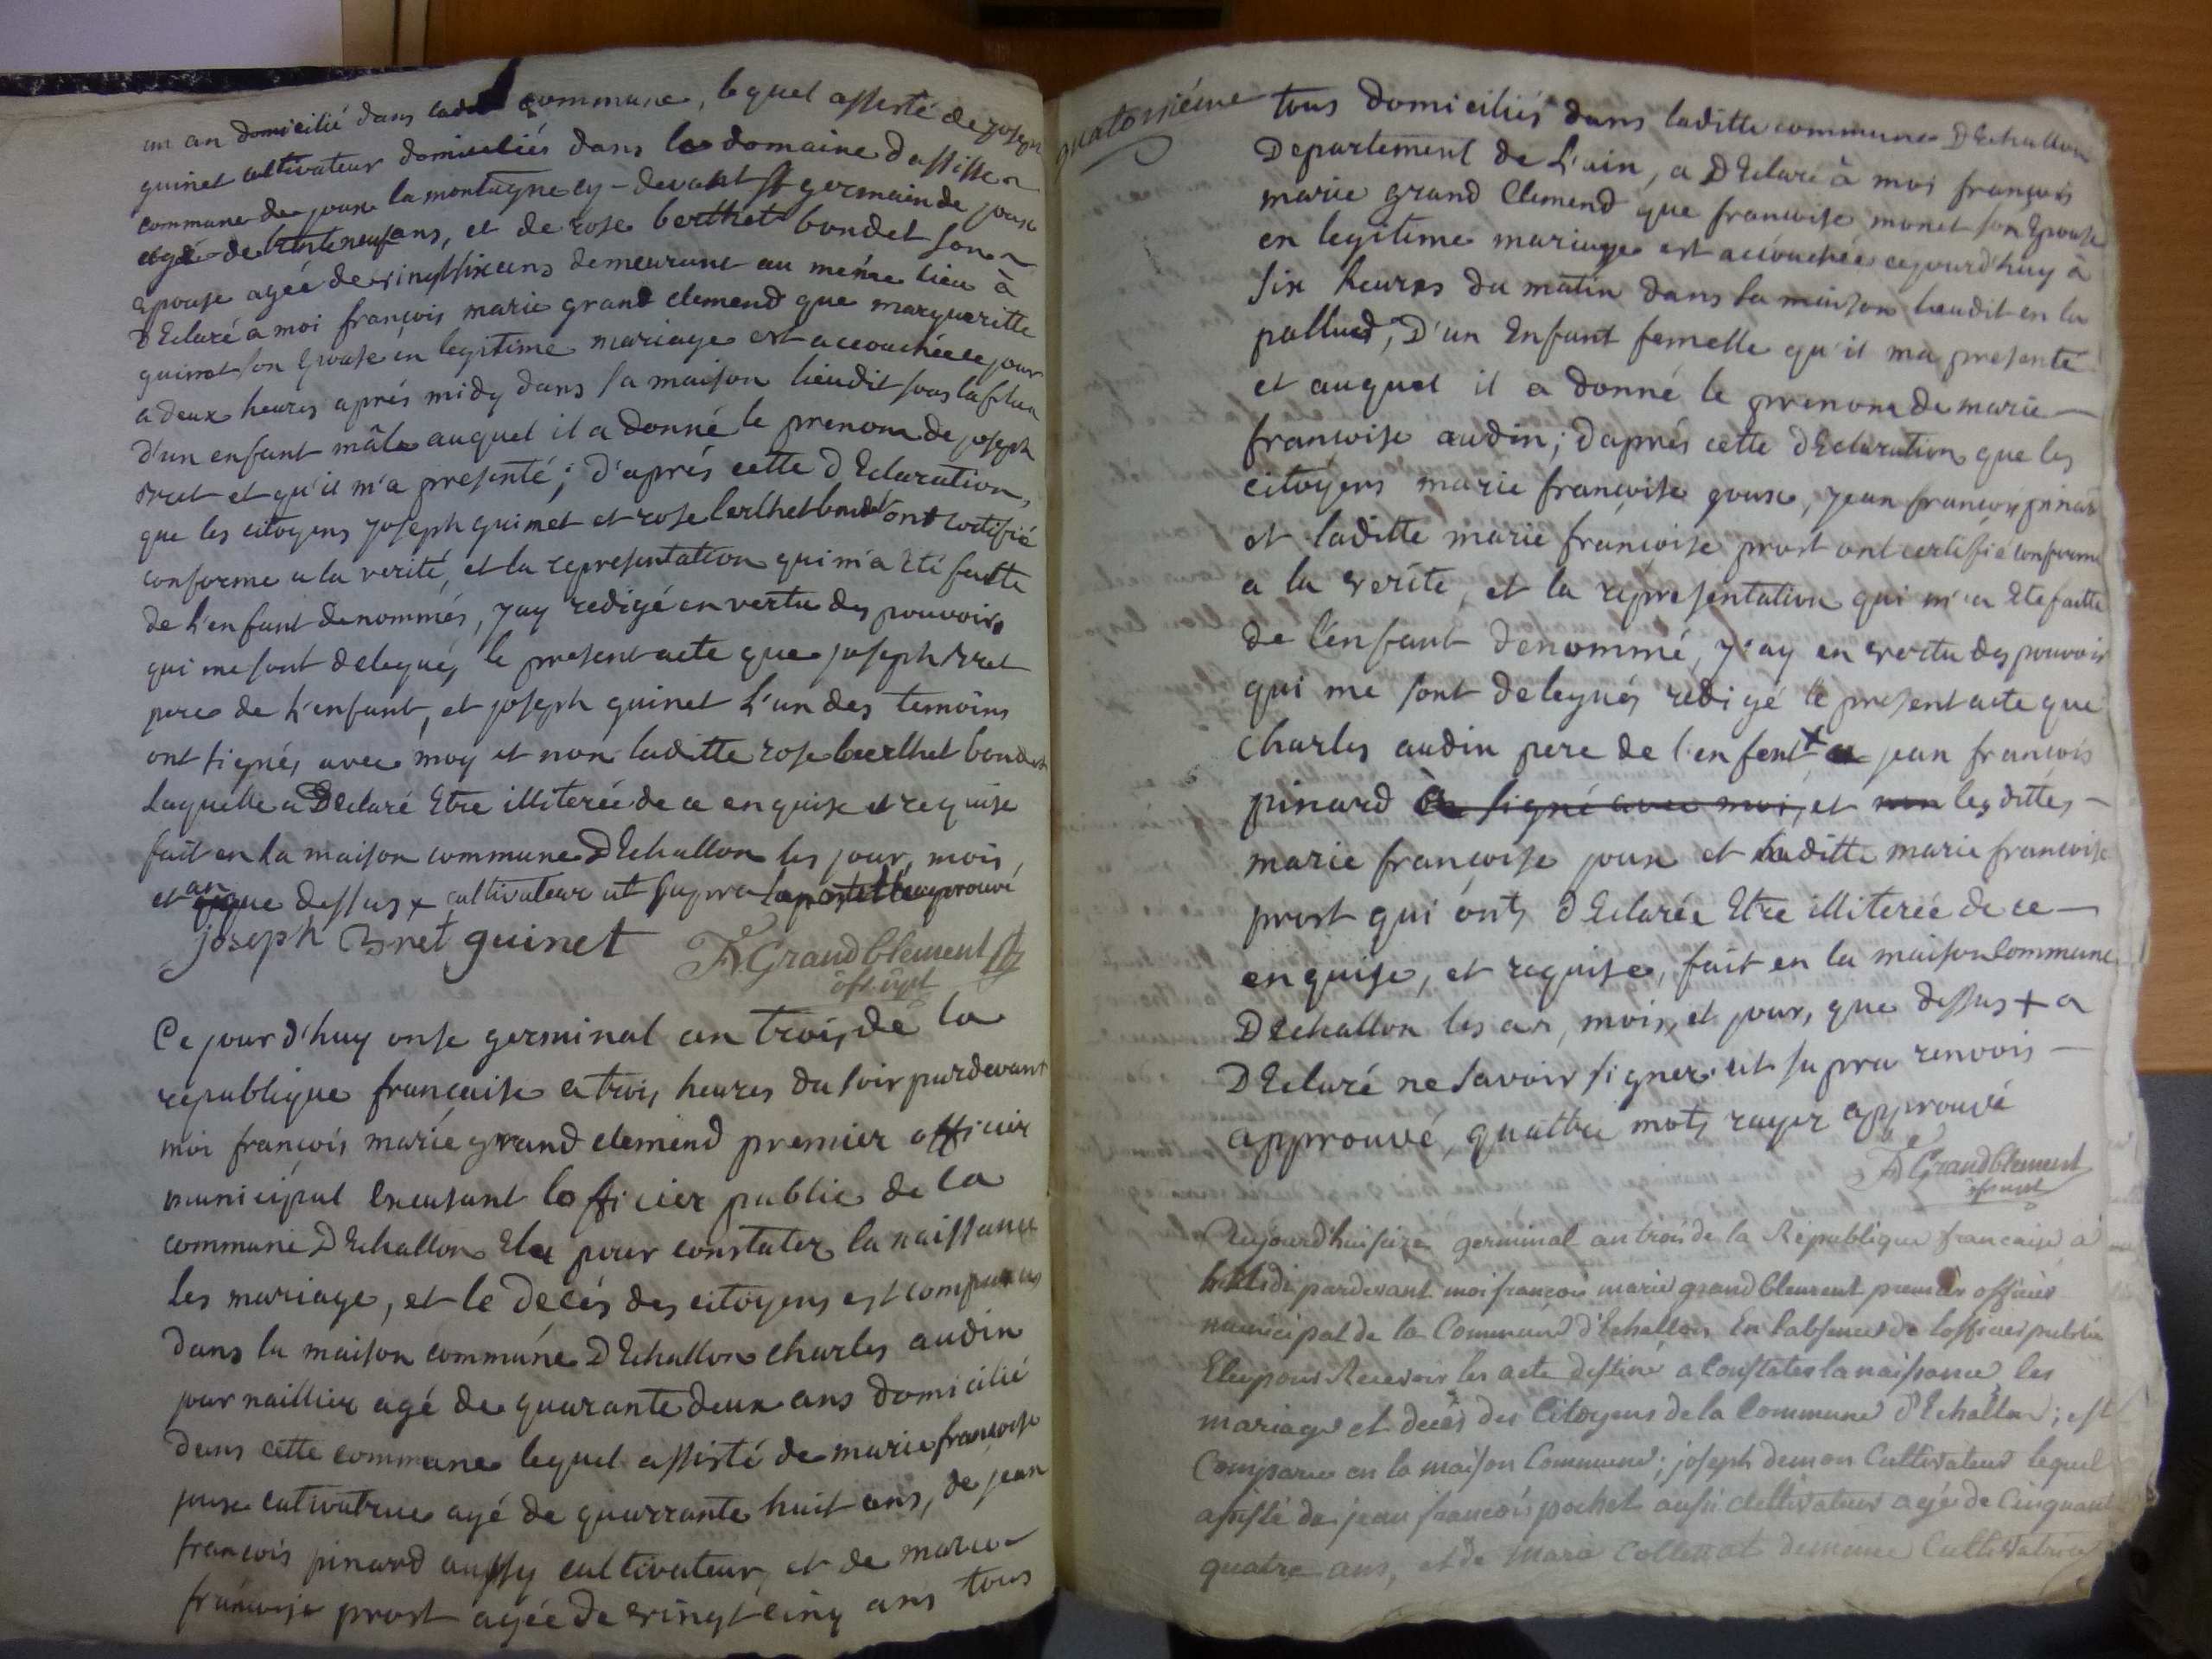 un an domicilié dans ladt commune, lequel assisté de joseph
guinet cultivateur domiciliés dans le domaine dassisse
commune de joux la montagne cy-devant st germain de joux
agé de trente neuf ans, et de rose berthet bondet son
epouse agée de vingt six ans demeurant au même lieu à
dEclaré a moi françois marie grand clemend que margueritte
guinet son Epouse en legitime mariage est accouchée ce jour
a deux heures aprés midy dans sa maison lieudit sous
d'un enfant mâle auquel il a donné le prenom de joseph
Bret et qu'il m'a presenté; d'aprés cette dEclaration,
que les citoyens joseph guinet et rose berthet bondet ont certifié
conforme a la verité, et la representation qui m'a Eté faitte
de l'enfant denommés, j'ay redigé en vertu des pouvoirs
qui me sont delegués, le present acte que joseph Bret
pere de l'enfant, et joseph guinet l'un des temoins
ont signés avec moy et non laditte rose berthet bondet
laquelle a dEclaré Etre illiterée de ce enquise et requise
fait en la maison commune dEchallon les jour, mois,
et an que dessus + cultivateur ut supra approuvé
joseph Bret guinet F Grandclement
off. mpl
Ce jourd'huy onse germinal an trois de la
republique française a trois heures du soir pardevant
moi françois marie grand clemend premier officier
municipal Excusant lofficier public de la
commune dEchallon Elu pour constater la naissance
les mariage, et le decés des citoyens est comparus
dans la maison commune dEchallon charles audin
journaillier agé de quarante deux ans domicilié
dans cette commune lequel assisté de marie françoise
joux cultivatrice agé de quarrante huit ans, de jean
françois pinard aussy cultivateur, et de marie
françoise prost agée de vingt cinq ans tous
quatorsiéme
tous domiciliés dans laditte commune dEchallon
Departement de L'ain, a dEclaré à moi françois
marie grand Clemend que francoise monet son Epouse
en legitime mariage est accouchée cejourd'huy à
six heures du matin dans sa maison lieudit en la
pallud, D'un Enfant femelle qu'il ma presenté
et auquel il a donné le prenom de marie
françoise audin; d'aprés cette dEclaration que les
citoyens marie françoise joux, jean françois pinard
et laditte marie françoise prost ont certifié conforme
a la verité, et la representation qui m'a Eté faitte
de l'enfant denommé, j'ay en vertu des pouvoir
qui me sont delegués redigé le present acte que
charles audin pere de l'enfent + jean françois
pinard a signé avec moi, et non lesdittes
marie françoise joux et laditte marie francoise
prost qui ont dEclarée Etre illiterée de ce
enquise, et requise, fait en la maison Commune
dEchallon les an, mois, et jour, que dessus + a
dEclaré ne savoir signer ut supra renvois
approuvé, quattre mots rayer approuvé
F Grandclement
off. mpl
Aujourd'hui seize germinal an trois de la République francaise à
midi pardevant moi françois marie grand Clement premier officier
municipal de la Commune d'Echallon En l'absence de l'officier public
Elu pour Recevoir les acte destiné a Constater la naissance les
mariage et deces des Citoyens de la Commune d'Echallon; est
Comparu en la maison Commune; joseph demon Cultivateur lequel
assisté de jean françois pochet aussi Cultivateur agé de Cinquante
quatre ans, et de marie Collet demeure Cultivatrice